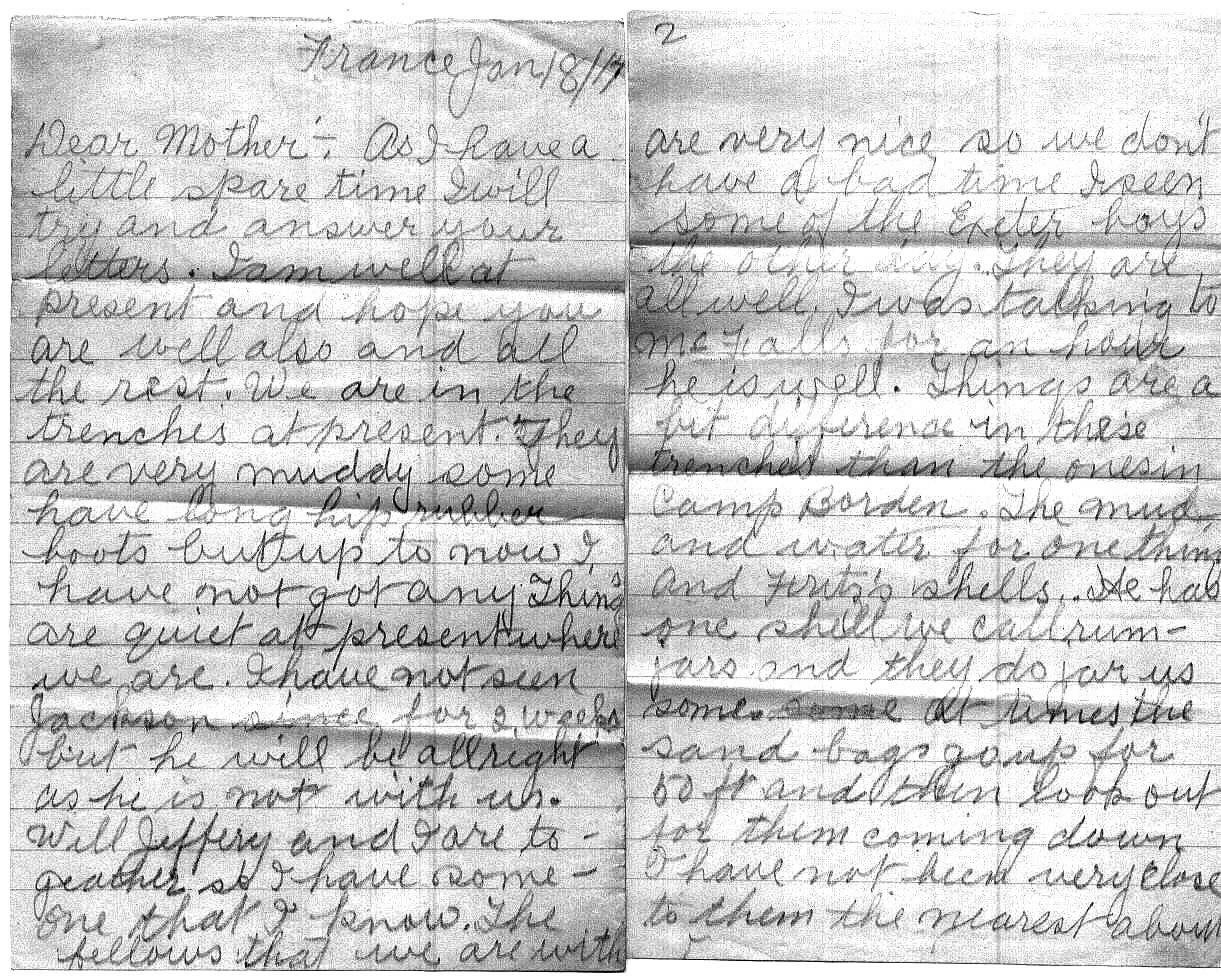 France Jan 18/17
Dear Mother:- As I have a
little spare time I will
try and answer your
letters. I am well at
present and hope you
are well also and all
the rest. We are in the
trenches at present. They
are very muddy some
have long hip rubber
boots but up to now I
have not got any Things
are quiet at present where
we are. I have not seen
Jackson since for 2 weeks
but he will be allright
as he is not with us.
Will Jeffery and I are to-
geather so I have some-
one that I know. The
fellows that we are with
2
are very nice so we don't
have a bad time I seen
some of the Exeter boys
the other day. They are
all well. I was talking to
McFalls for an hour
he is well. Things are a
bit difference in these
trenches than the ones in
Camp Borden. The mud
and water for one thing
and Fritz's shells. He has
one shell we call rum-
jars and they do jar us
some. some At times the
sand bags go up for
50 ft and then look out
for them coming down
I have not been very close
to them the nearest about